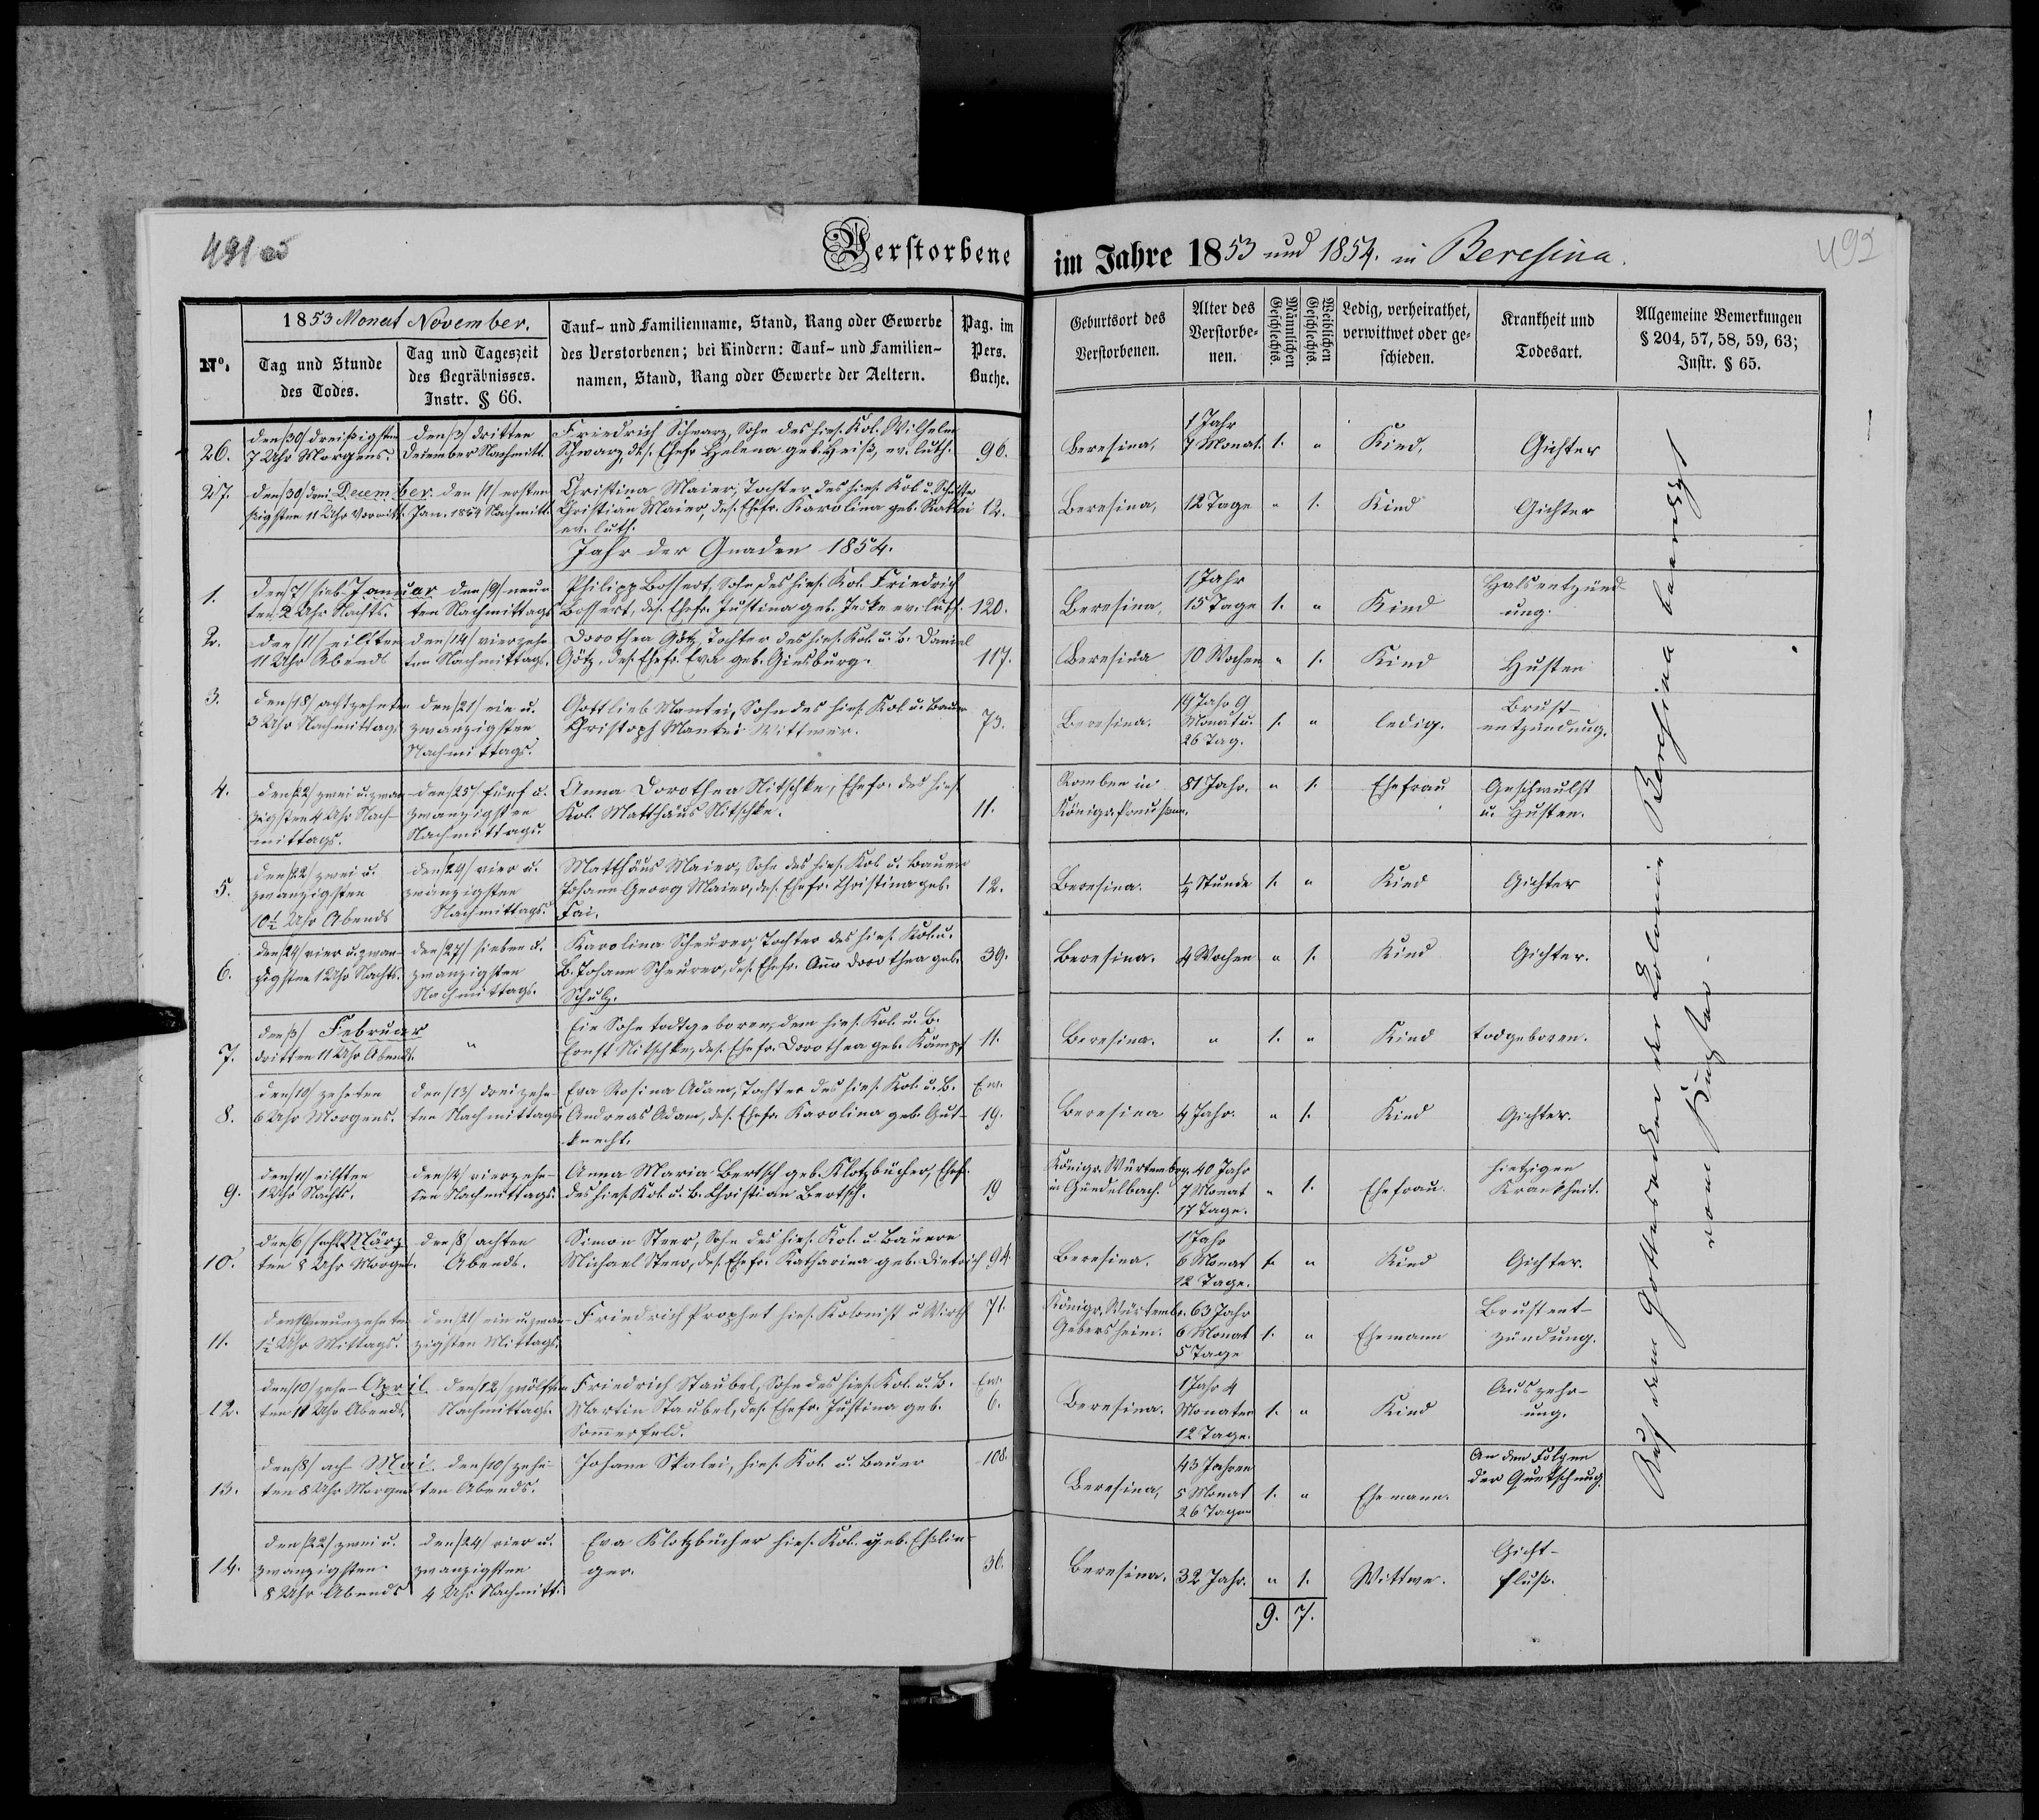 491
492
Verstorbene
im Jahre 1853 und 1854. in Beresina.
No.
1853 Monat November.
Tag und Stunde
des Todes.
Tag und Tageszeit
des Begräbnisses.
Instr. § 66.
Tauf- und Familienname, Stand, Rang oder Gewerbe
des Verstorbenen; bei Kindern: Tauf- und Familien-
namen, Stand, Rang oder Gewerbe der Aeltern.
Pag. im
Pers.
Buche.
Geburtsort des
Verstorbenen.
Alter des
Verstorbe-
nen.
Männlichen
Geschlechts.
Weiblichen
Geschlechts.
Ledig, verheirathet,
verwittwet oder ge-
schieden.
Krankheit und
Todesart.
Allgemeine Bemerkungen
§ 204, 57, 58, 59, 63;
Instr. § 65.
26.
den /30/ dreißigsten
7 Uhr Morgens.
den /3/ dritten
December Nachmitt.
Friedrich Schwarz, Sohn des hies. Kol. Wilhelm
Schwarz, des. Ehefr. Helena geb. Heiß, ev. luth.
96.
Beresina,
1 Jahr
7 Monat.
1.
"
Kind,
Gichter
27.
den /30/ drei December. den /1/ ersten
ßigsten 11 Uhr Vormitt. Jan. 1854 Nachmitt.
Christina Maier, Tochter des hies. Kol. u.
Christian Maier, des. Ehefr. Karolina geb. Rattai
ev. luth.
12.
Beresina,
12 Tage
"
1.
Kind
Gichter
Jahr der Gnaden 1854.
1.
den /7/ sieb- Januar den /9/ neun
ten 2 Uhr Nachts.
ten Nachmittags
Philipp Bossert, Sohn des hies. Kol. Friedrich
Bossert, des. Ehefr. Justina geb. Jeske ev. luth.
120.
Beresina,
1 Jahr
15 Tage
1.
"
Kind
Halsentzünd-
ung.
2.
den /11/ eilften
11 Uhr Abends
den /14/ vierzehn
ten Nachmittags.
Dorothea Götz, Tochter des hies. Kol. u. b. Daniel
Götz, des. Ehefr. Eva geb. Ginsburg.
117.
Beresina
10 Wochen
"
1.
Kind
Husten
3.
den /18/ achtzehnten
3 Uhr Nachmittags
den /21/ ein u.
zwanzigsten
Nachmittags.
Gottlieb Mantei, Sohn des hies. Kol. u. Bauer
Christoph Mantei Wittwer.
73.
Beresina.
19 Jahr 9
Monat u.
26 Tag.
1.
"
ledig.
Brust-
entzündung.
4.
den /22/ zwei u. zwan-
zigsten 4 Uhr Nach-
mittags.
den /25/ fünf u.
zwanzigsten
Nachmittags.
Anna Dorothea Nitschke, Ehefr. des hies.
Kol. Matthäus Nitschke.
11.
Romben in
Königr. Preußen.
81 Jahr.
"
1.
Ehefrau
Geschwulst
u. Husten.
5.
den /22/ zwei u.
zwanzigsten
10½ Uhr Abends
den /24/ vier u.
zwanzigsten
Nachmittags.
Matthäus Maier, Sohn des hies. Kol. u. Bauern
Johann Georg Maier, des. Ehefr. Christina geb.
Fai.
12.
Beresina.
¼ Stunde
1.
"
Kind
Gichter
6.
den /24/ vier u. zwan-
zigsten 1 Uhr Nachts.
den /27/ sieben u.
zwanzigsten
Nachmittags.
Karolina Scheurer, Tochter des hies. Kol. u.
B. Johann Scheurer, des. Ehefr. Anna Dorothea geb.
Schulz.
39.
Beresina.
4 Wochen
"
1.
Kind
Gichter.
7.
den /3/ Februar
dritten 11 Uhr Abends.
"
Ein Sohn todtgeboren, dem hies. Kol. u. B.
Ernst Nitschke, des. Ehefr. Dorothea geb. Kämpf
11.
Beresina.
"
1.
"
Kind
todgeboren.
8.
den /10/ zehnten
6 Uhr Morgens.
den /13/ dreizehn
ten Nachmittags
Eva Rosina Adam, Tochter des hies. Kol. u. B.
Andreas Adam, des. Ehefr. Karolina geb. Gut-
knecht.
19.
Beresina
4 Jahr.
"
1.
Kind
Gichter.
9.
den /11/ eilften
1 Uhr Nachts.
den /14/ vierzehn-
ten Nachmittags.
Anna Maria Bertsch geb. Klotzbücher, Ehef.
des hies. Kol. u. B. Christian Bertsch.
19
Königr. Würtemberg.
in Gündelbach.
40 Jahr
7 Monat
17 Tage.
"
1.
Ehefrau.
hietzigen
Krankheit.
10.
den /6/ sechs März
ten 8 Uhr Morgens.
den /8/ achten
Abends.
Simon Steer, Sohn des hies. Kol. u. Bauern
Michael Steer, des. Ehefr. Katharina geb. Dietrich
94.
Beresina.
1 Jahr
6 Monat
12 Tage.
1.
"
Kind
Gichter.
11.
den /19/ neunzehnten
1½ Uhr Mittags.
den /21/ ein u. zwan-
zigsten Mittags.
Friedrich Prophet hies. Kolonist u. Wirth
71.
Königr. Würtembr.
Gebersheim.
63 Jahr
6 Monat
5 Tage
1.
"
Ehemann
Brustent-
zündung.
12.
den /10/ zehn- April den /12/ zwölften
ten 11 Uhr Abends.
Nachmittags.
Friedrich Staubel, Sohn des hies. Kol. u. B.
Martin Staubel, des. Ehefr. Justina geb.
Sommerfeld.
6.
Beresina.
1 Jahr 4
Monaten
12 Tage.
1.
"
Kind
Auszehr-
ung.
13.
den /8/ ach- Mai den /10/ zehn-
ten 8 Uhr Morgens
ten Abends.
Johann Skalei, hies. Kol. u. Bauer
108.
Beresina,
43 Jahren
5 Monat
26 Tagen
1.
"
Ehemann.
An den Folgen
der Quetschung.
14.
den /22/ zwei u.
zwanzigsten
8 Uhr Abends
den /24/ vier u.
zwanzigsten
4 Uhr Nachmitt.
Eva Klotzbücher hies. Kol. geb. Ehslin-
ger.
36.
Beresina.
32 Jahr.
"
1.
Wittwe.
Gicht-
fluß.
9. 7.
Auf dem Gottesacker der Kolonie Beresina beerdigt
vom Küster.